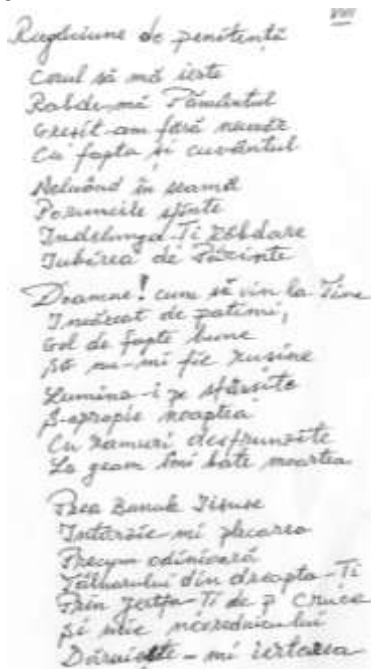 VIII
Rugăciune de penitență
Cerul să mă ierte
Rabde-mă Pământul
Greșit-am fără număr
Cu fapta și cuvântul
Neluând în seamă
Poruncile sfinte
Îndelunga-Ți răbdare
Iubirea de Părinte
Doamne! cum să vin la Tine
Încărcat de patimi,
Gol de fapte bune
Să nu-mi fie rușine
Lumina-i pe sfârșite
S-apropie noaptea
Cu ramuri desfrunzite
La geam îmi bate moartea
Prea Bunule Iisuse
Întârzie-mi plecarea
Precum odinioară
Tâlharului din dreapta-Ți
Prin Jertfa-Ți de p Cruce
Și mie necredniculu lui
Dăruiește-mi iertarea